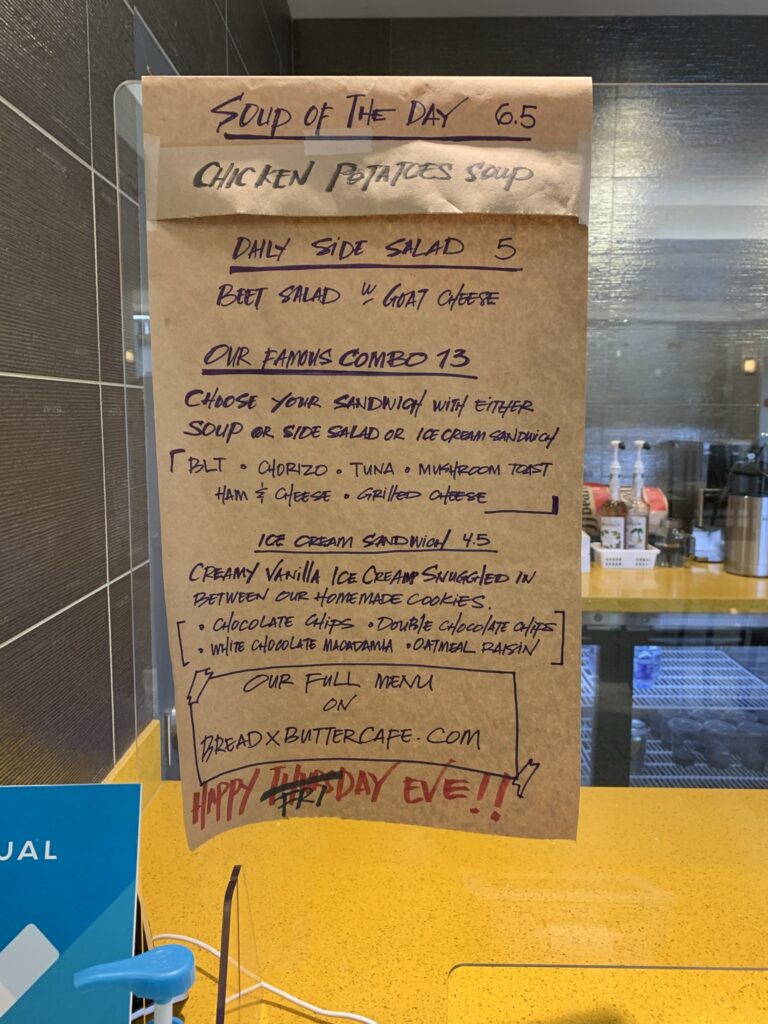 SOUP OF THE DAY 6.5
CHICKEN POTATOES SOUP
DAILY SIDE SALAD 5
BEET SALAD W/ GOAT CHEESE
OUR FAMOUS COMBO 13
CHOOSE YOUR SANDWICH WITH EITHER
SOUP OR SIDE SALAD OR ICE CREAM SANDWICH
BLT • CHORIZO • TUNA • MUSHROOM TOAST
HAM & CHEESE • GRILLED CHEESE
ICE CREAM SANDWICH 4.5
CREAMY VANILLA ICE CREAM SNUGGLED IN
BETWEEN OUR HOMEMADE COOKIES.
• CHOCOLATE CHIPS • DOUBLE CHOCOLATE CHIPS
• WHITE CHOCOLATE MACADAMIA • OATMEAL RAISIN
OUR FULL MENU
ON
BREADXBUTTERCAFE.COM
HAPPY THURSDAY EVE!!
FRI
UAL